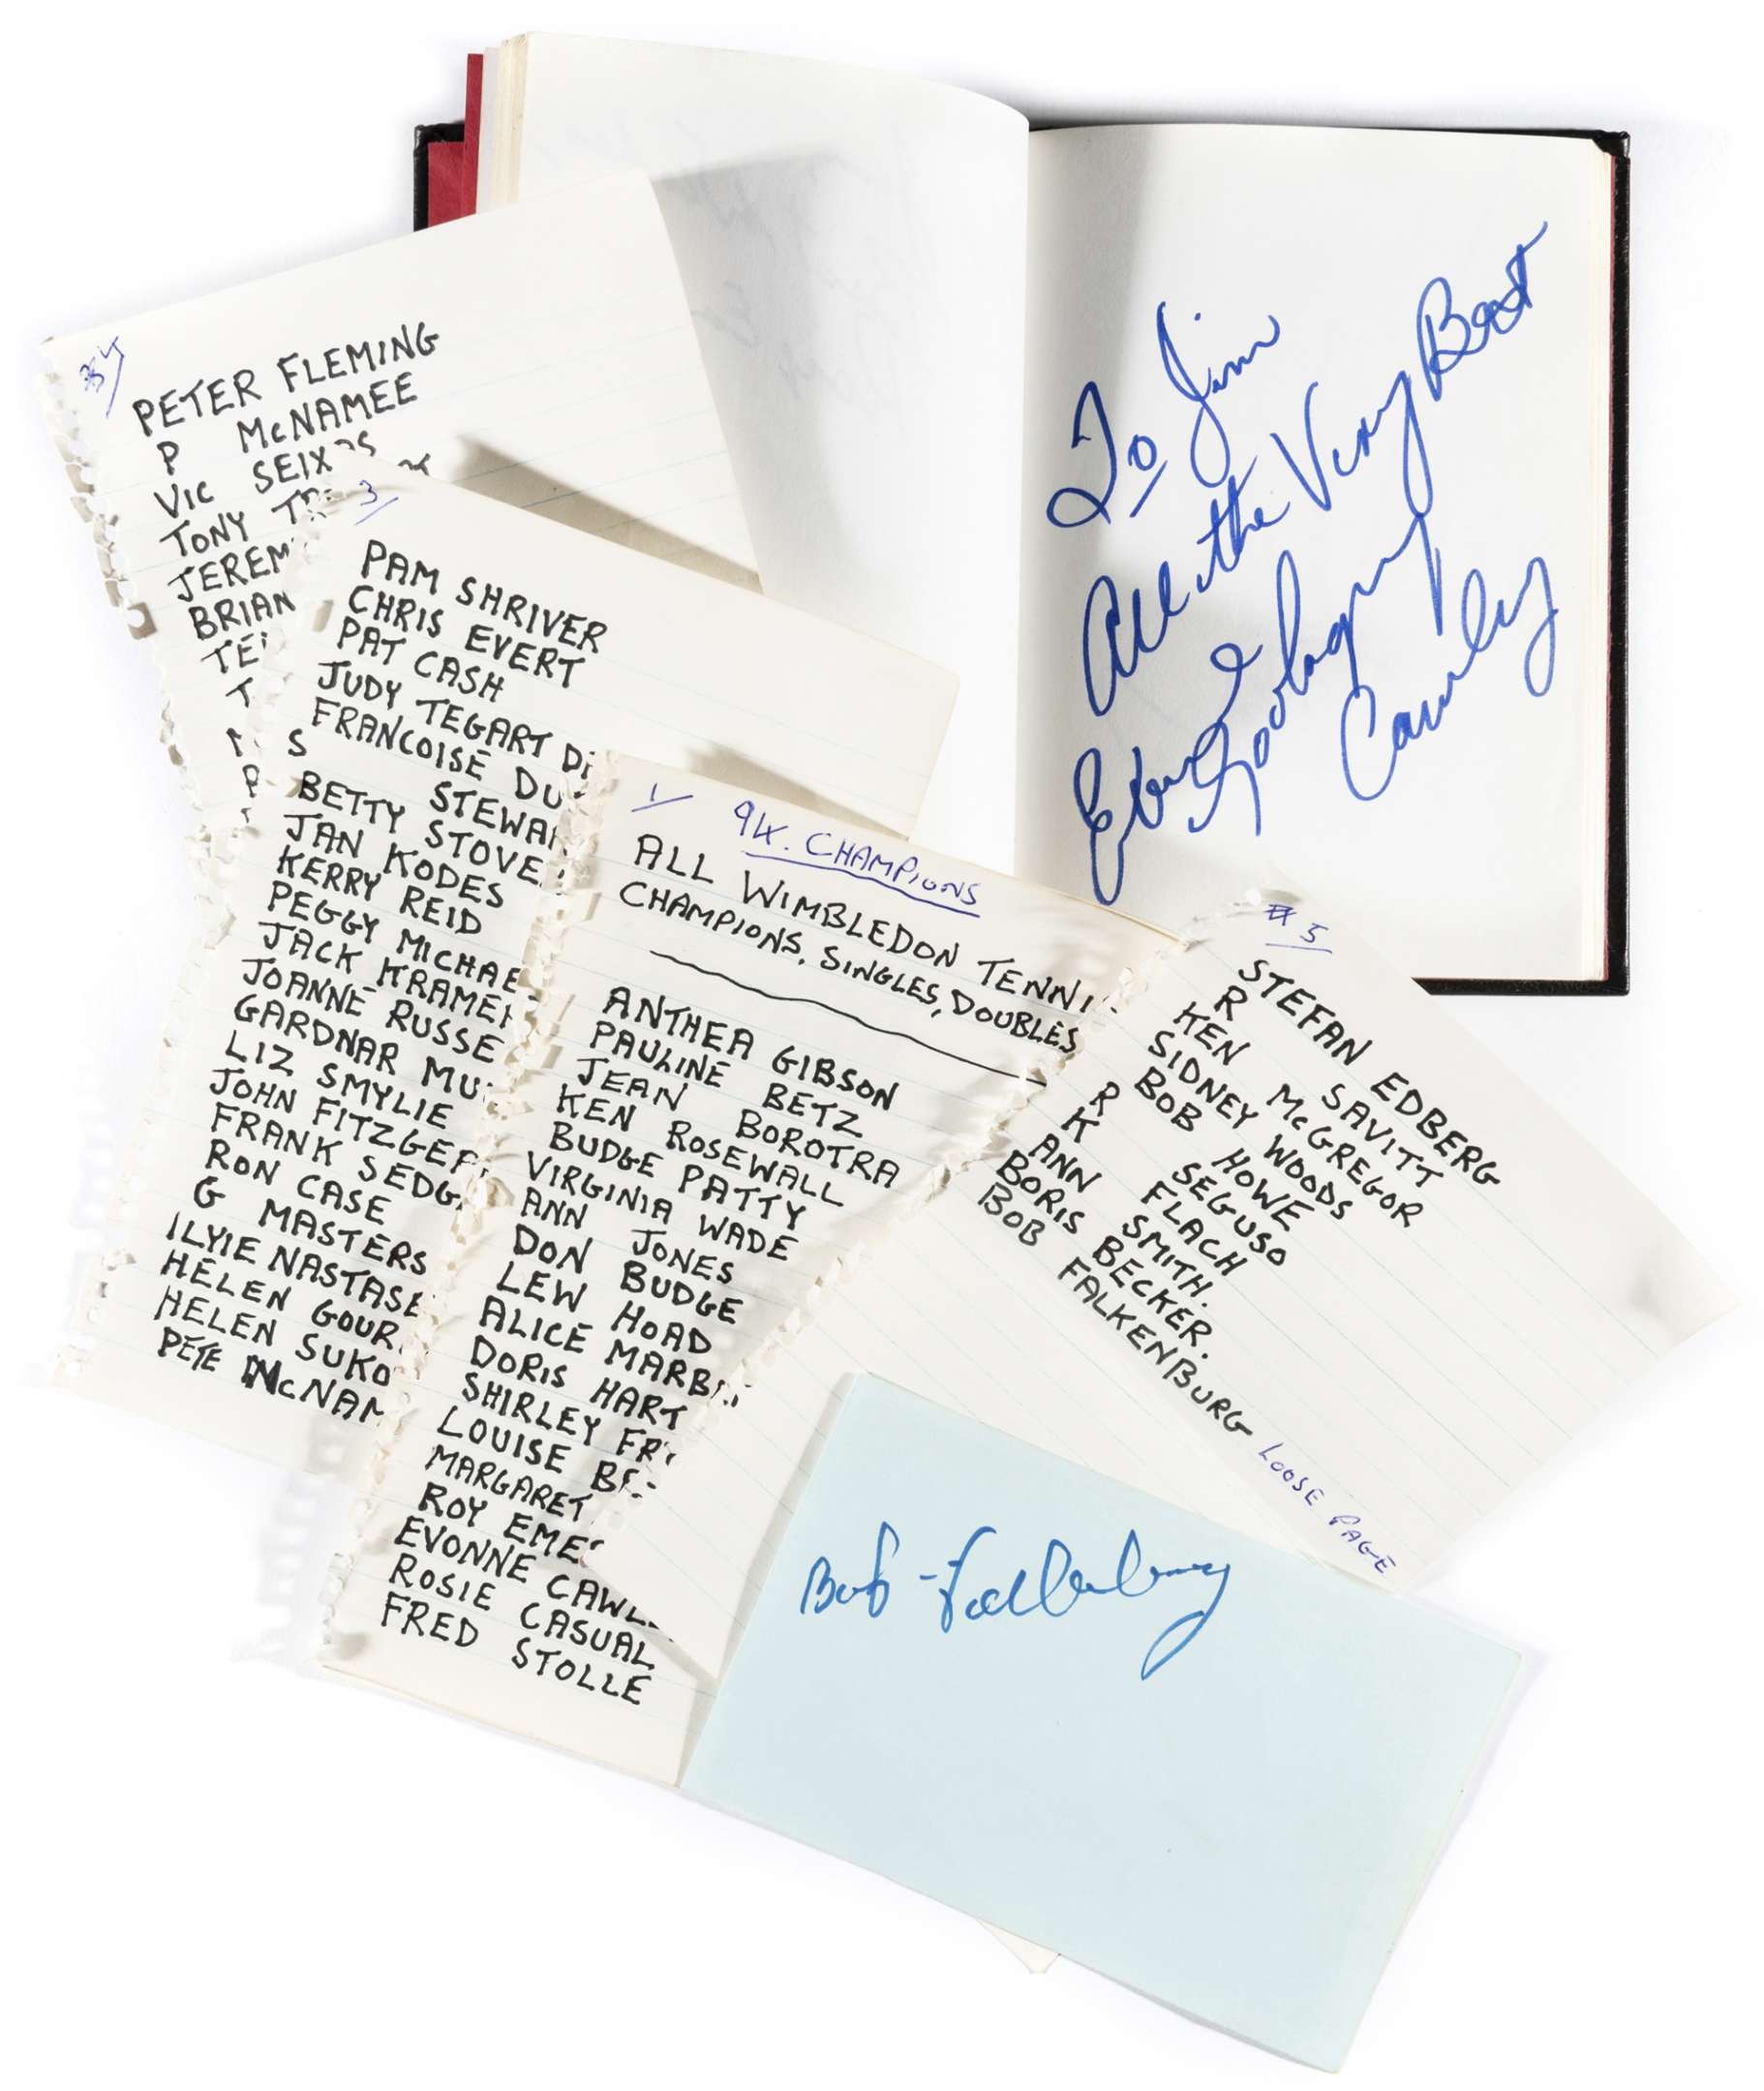 To Jim
All the Very Best
Evonne Goolagong
Cawley
4/
PETER FLEMING
P McNAMEE
VIC SEIXAS
TONY TR
JEREM
BRIAN
TE
T
3/
PAM SHRIVER
CHRIS EVERT
PAT CASH
JUDY TEGART D
FRANCOISE DU
S STEWAR
BETTY STOVE
JAN KODES
KERRY REID
PEGGY MICHAE
JACK KRAMER
JOANNE RUSSE
GARDNAR MU
LIZ SMYLIE
JOHN FITZGER
FRANK SEDG
RON CASE
G MASTERS
ILYIE NASTASE
HELEN GOUR
HELEN SUKO
PETE McNAM
1/ 94. CHAMPIONS
ALL WIMBLEDON TENNI
CHAMPIONS, SINGLES, DOUBLES
ANTHEA GIBSON
PAULINE BETZ
JEAN BOROTRA
KEN ROSEWALL
BUDGE PATTY
VIRGINIA WADE
ANN JONES
DON BUDGE
LEW HOAD
ALICE MARB
DORIS HART
SHIRLEY FR
LOUISE B
MARGARET
ROY EME
EVONNE CAWL
ROSIE CASUAL
FRED STOLLE
5
STEFAN EDBERG
R SAVITT
KEN McGREGOR
SIDNEY WOODS
BOB HOWE
R SEGUSO
K FLACH
ANN SMITH.
BORIS BECKER.
BOB FALKENBURG LOOSE PAGE
Bob Falkenburg